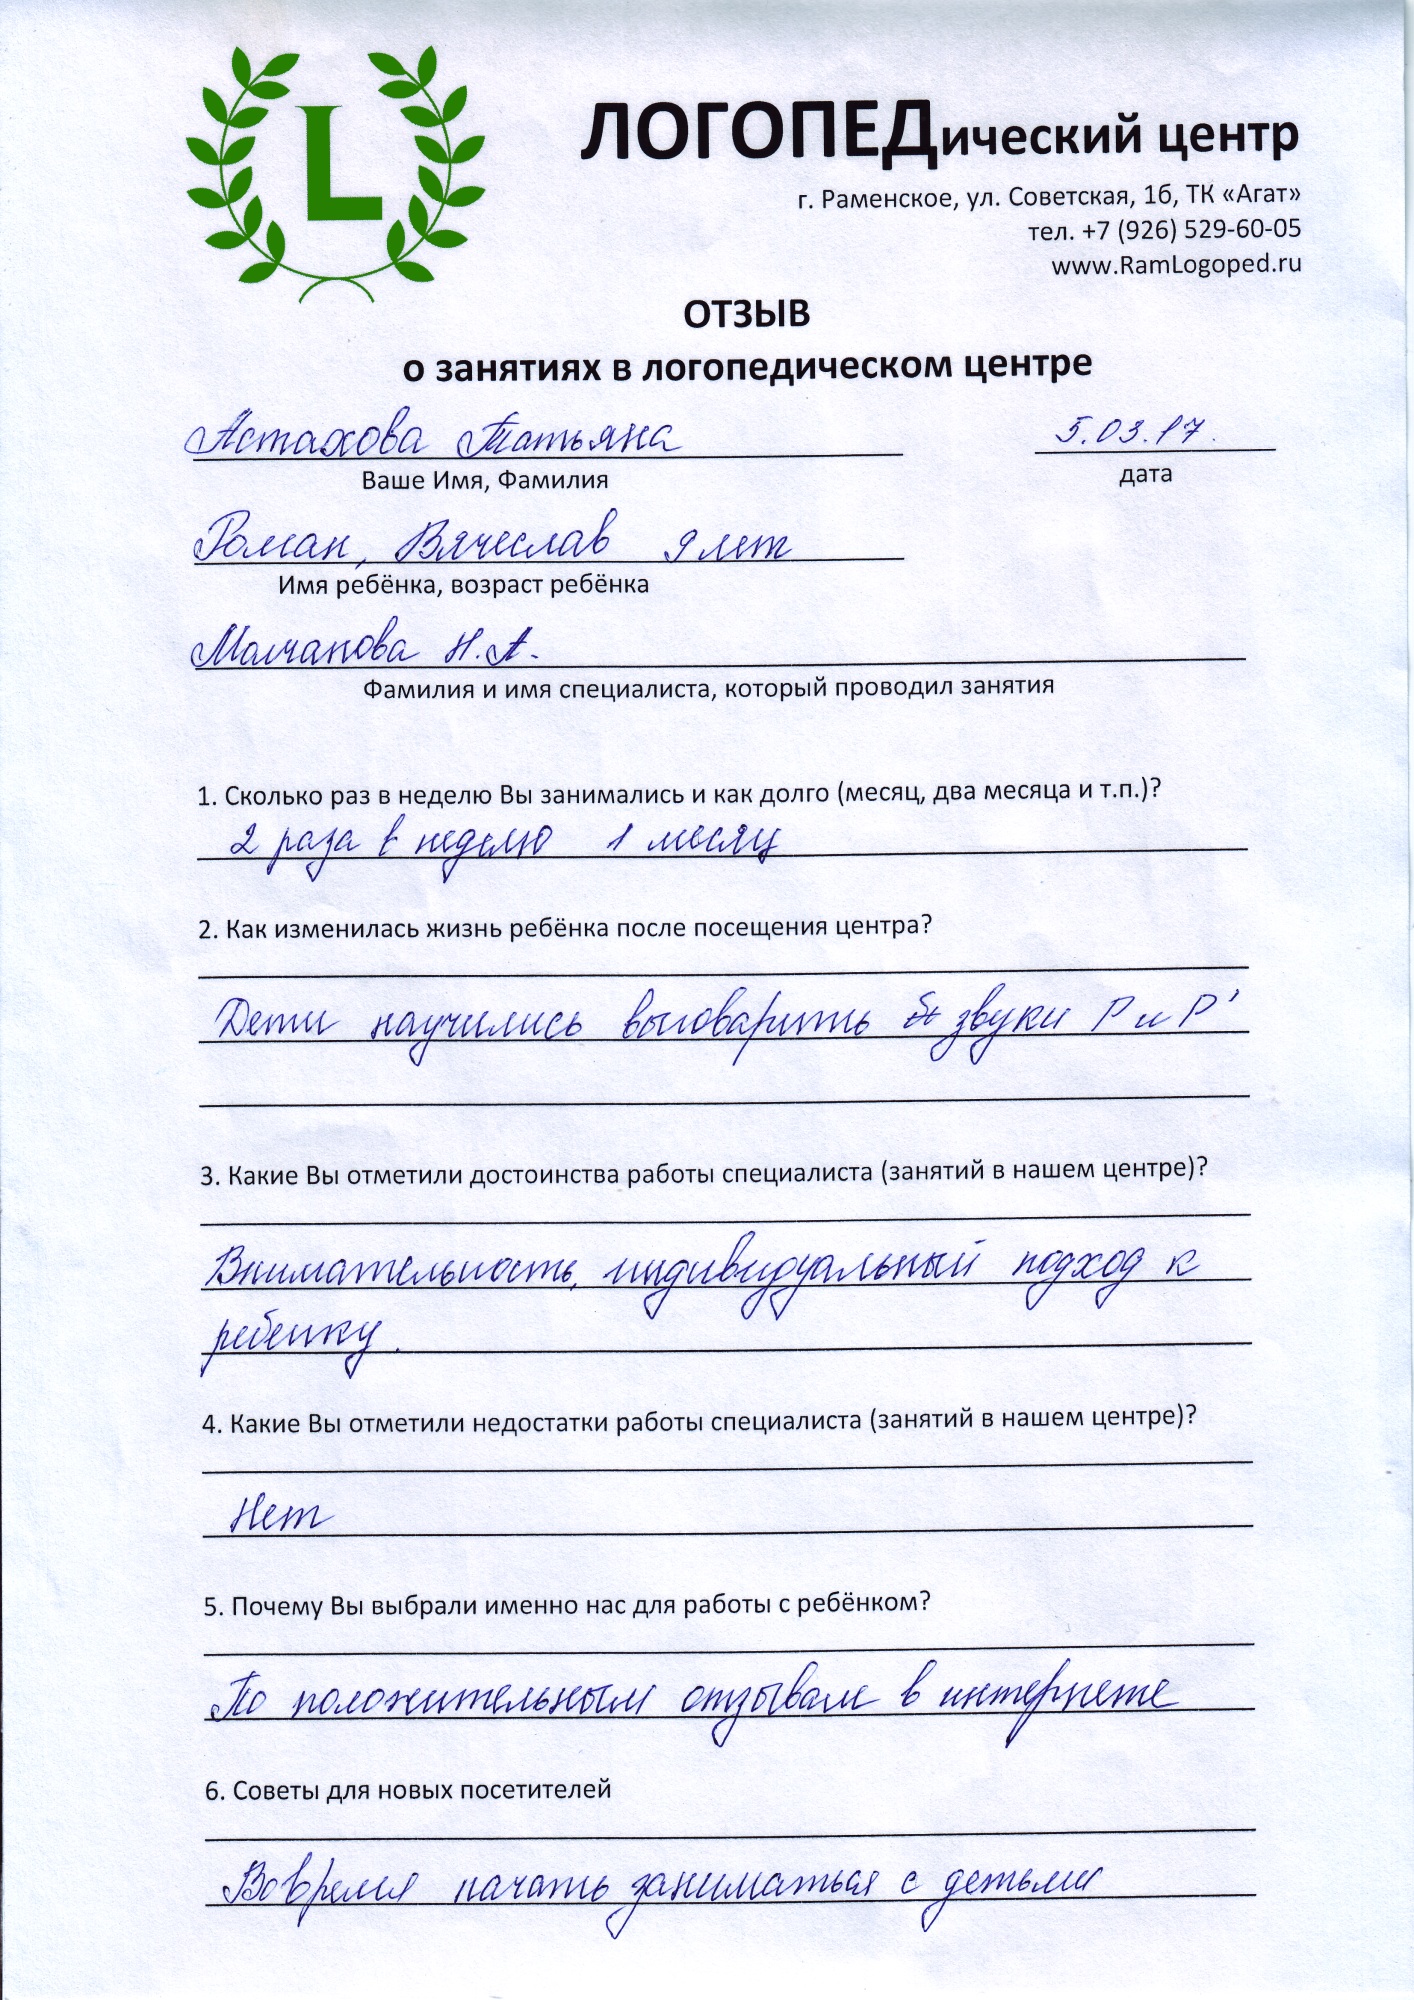 L
ЛОГОПЕДический центр
г. Раменское, ул. Советская, 1б, ТК «Агат»
тел. +7 (926) 529-60-05
www.RamLogoped.ru
ОТЗЫВ
о занятиях в логопедическом центре
Астахова Татьяна 5.03.17.
Ваше Имя, Фамилия дата
Роман, Вячеслав 9 лет
Имя ребёнка, возраст ребёнка
Молчанова Н.А.
Фамилия и имя специалиста, который проводил занятия
1. Сколько раз в неделю Вы занимались и как долго (месяц, два месяца и т.п.)?
2 раза в неделю 1 месяц
2. Как изменилась жизнь ребёнка после посещения центра?
Дети научились выговарить звуки Р и Р'
3. Какие Вы отметили достоинства работы специалиста (занятий в нашем центре)?
Внимательность, индивидуальный подход к
ребенку.
4. Какие Вы отметили недостатки работы специалиста (занятий в нашем центре)?
Нет
5. Почему Вы выбрали именно нас для работы с ребёнком?
По положительным отзывам в интернете
6. Советы для новых посетителей
Вовремя начать заниматься с детьми